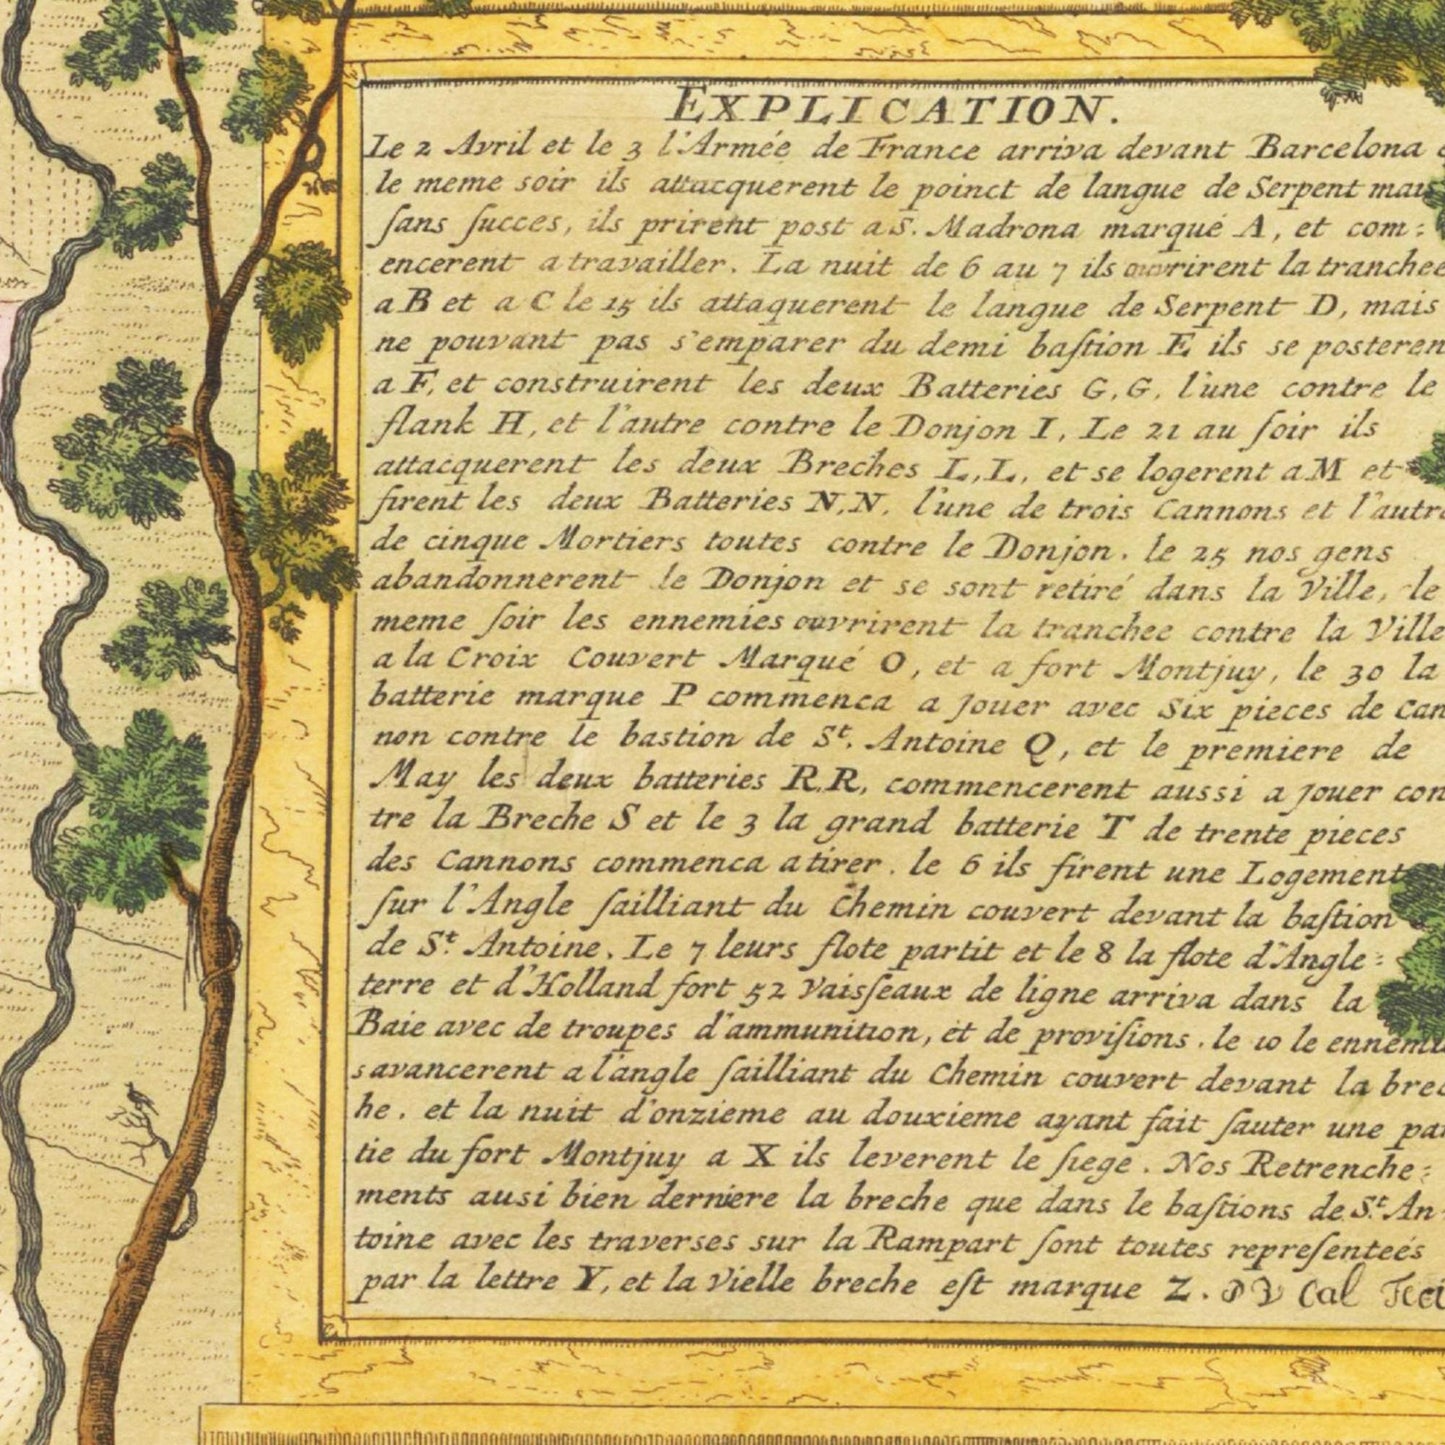 EXPLICATION.
Le 2 Avril et le 3 l'Armée de France arriva devant Barcelona
le meme soir ils attacquerent le poinct de langue de Serpent mais
ſans ſucces, ils prirent post a S. Madrona marqué A, et com:
encerent a travailler. La nuit de 6 au 7 ils ouvrirent la tranchee
a B et a C le 15 ils attaquerent le langue de Serpent D, mais
ne pouvant pas s'emparer du demi baſtion E ils se posteren
a F, et construirent les deux Batteries G, G, l'une contre le
flank H, et l'autre contre le Donjon I, Le 21 au ſoir ils
attacquerent les deux Breches L, L, et se logerent a M et
firent les deux Batteries N, N, l'une de trois Cannons et l'autre
de cinque Mortiers toutes contre le Donjon. le 25 nos gens
abandonnerent le Donjon et se sont retiré dans la Ville, le
meme ſoir les ennemies ouvrirent la tranchee contre la Ville
a la Croix Couvert Marqué O, et a fort Montjuy, le 30 la
batterie marque P commenca a Jouer avec Six pieces de Can
non contre le bastion de St. Antoine Q, et le premiere de
May les deux batteries R, R, commencerent aussi a Jouer con
tre la Breche S et le 3 la grand batterie T de trente pieces
des Cannons commenca a tirer. le 6 ils firent une Logement
ſur l'Angle ſailliant du Chemin couvert devant la baſtion
de St. Antoine. Le 7 leurs flote partit et le 8 la flote d'Angle:
terre et d'Holland fort 52 Vaisſeaux de ligne arriva dans la
Baie avec de troupes d'ammunition, et de proviſions. le 10 le ennemi
s avancerent a l'angle ſailliant du Chemin couvert devant la brec
he. et la nuit d'onzieme au douxieme ayant fait ſauter une par
tie du fort Montjuy a X ils leverent le ſiege. Nos Retrenche:
ments ausi bien derniere la breche que dans le baſtions de St. An
toine avec les traverses sur la Rampart ſont toutes repreſenteés
par la lettre Y, et la Vielle breche eſt marque Z. Cal